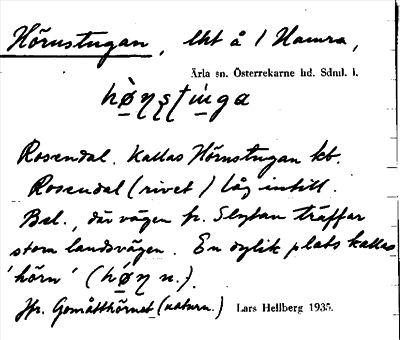 Hörnstugan, lht å 1 Hamra,
Ärla sn. Österrekarne hd. Sdml. l.
Rosendal. Kallas Hörnstugan kb.
Rosendal (rivet) låg intill.
Bel., där vägen fr. Slytan träffar
stora landsvägen. En dylik plats kallas
'hörn' (hø̀ɳ n.).
Jfr. Gomåtthörnet (naturn.) Lars Hellberg 1935.